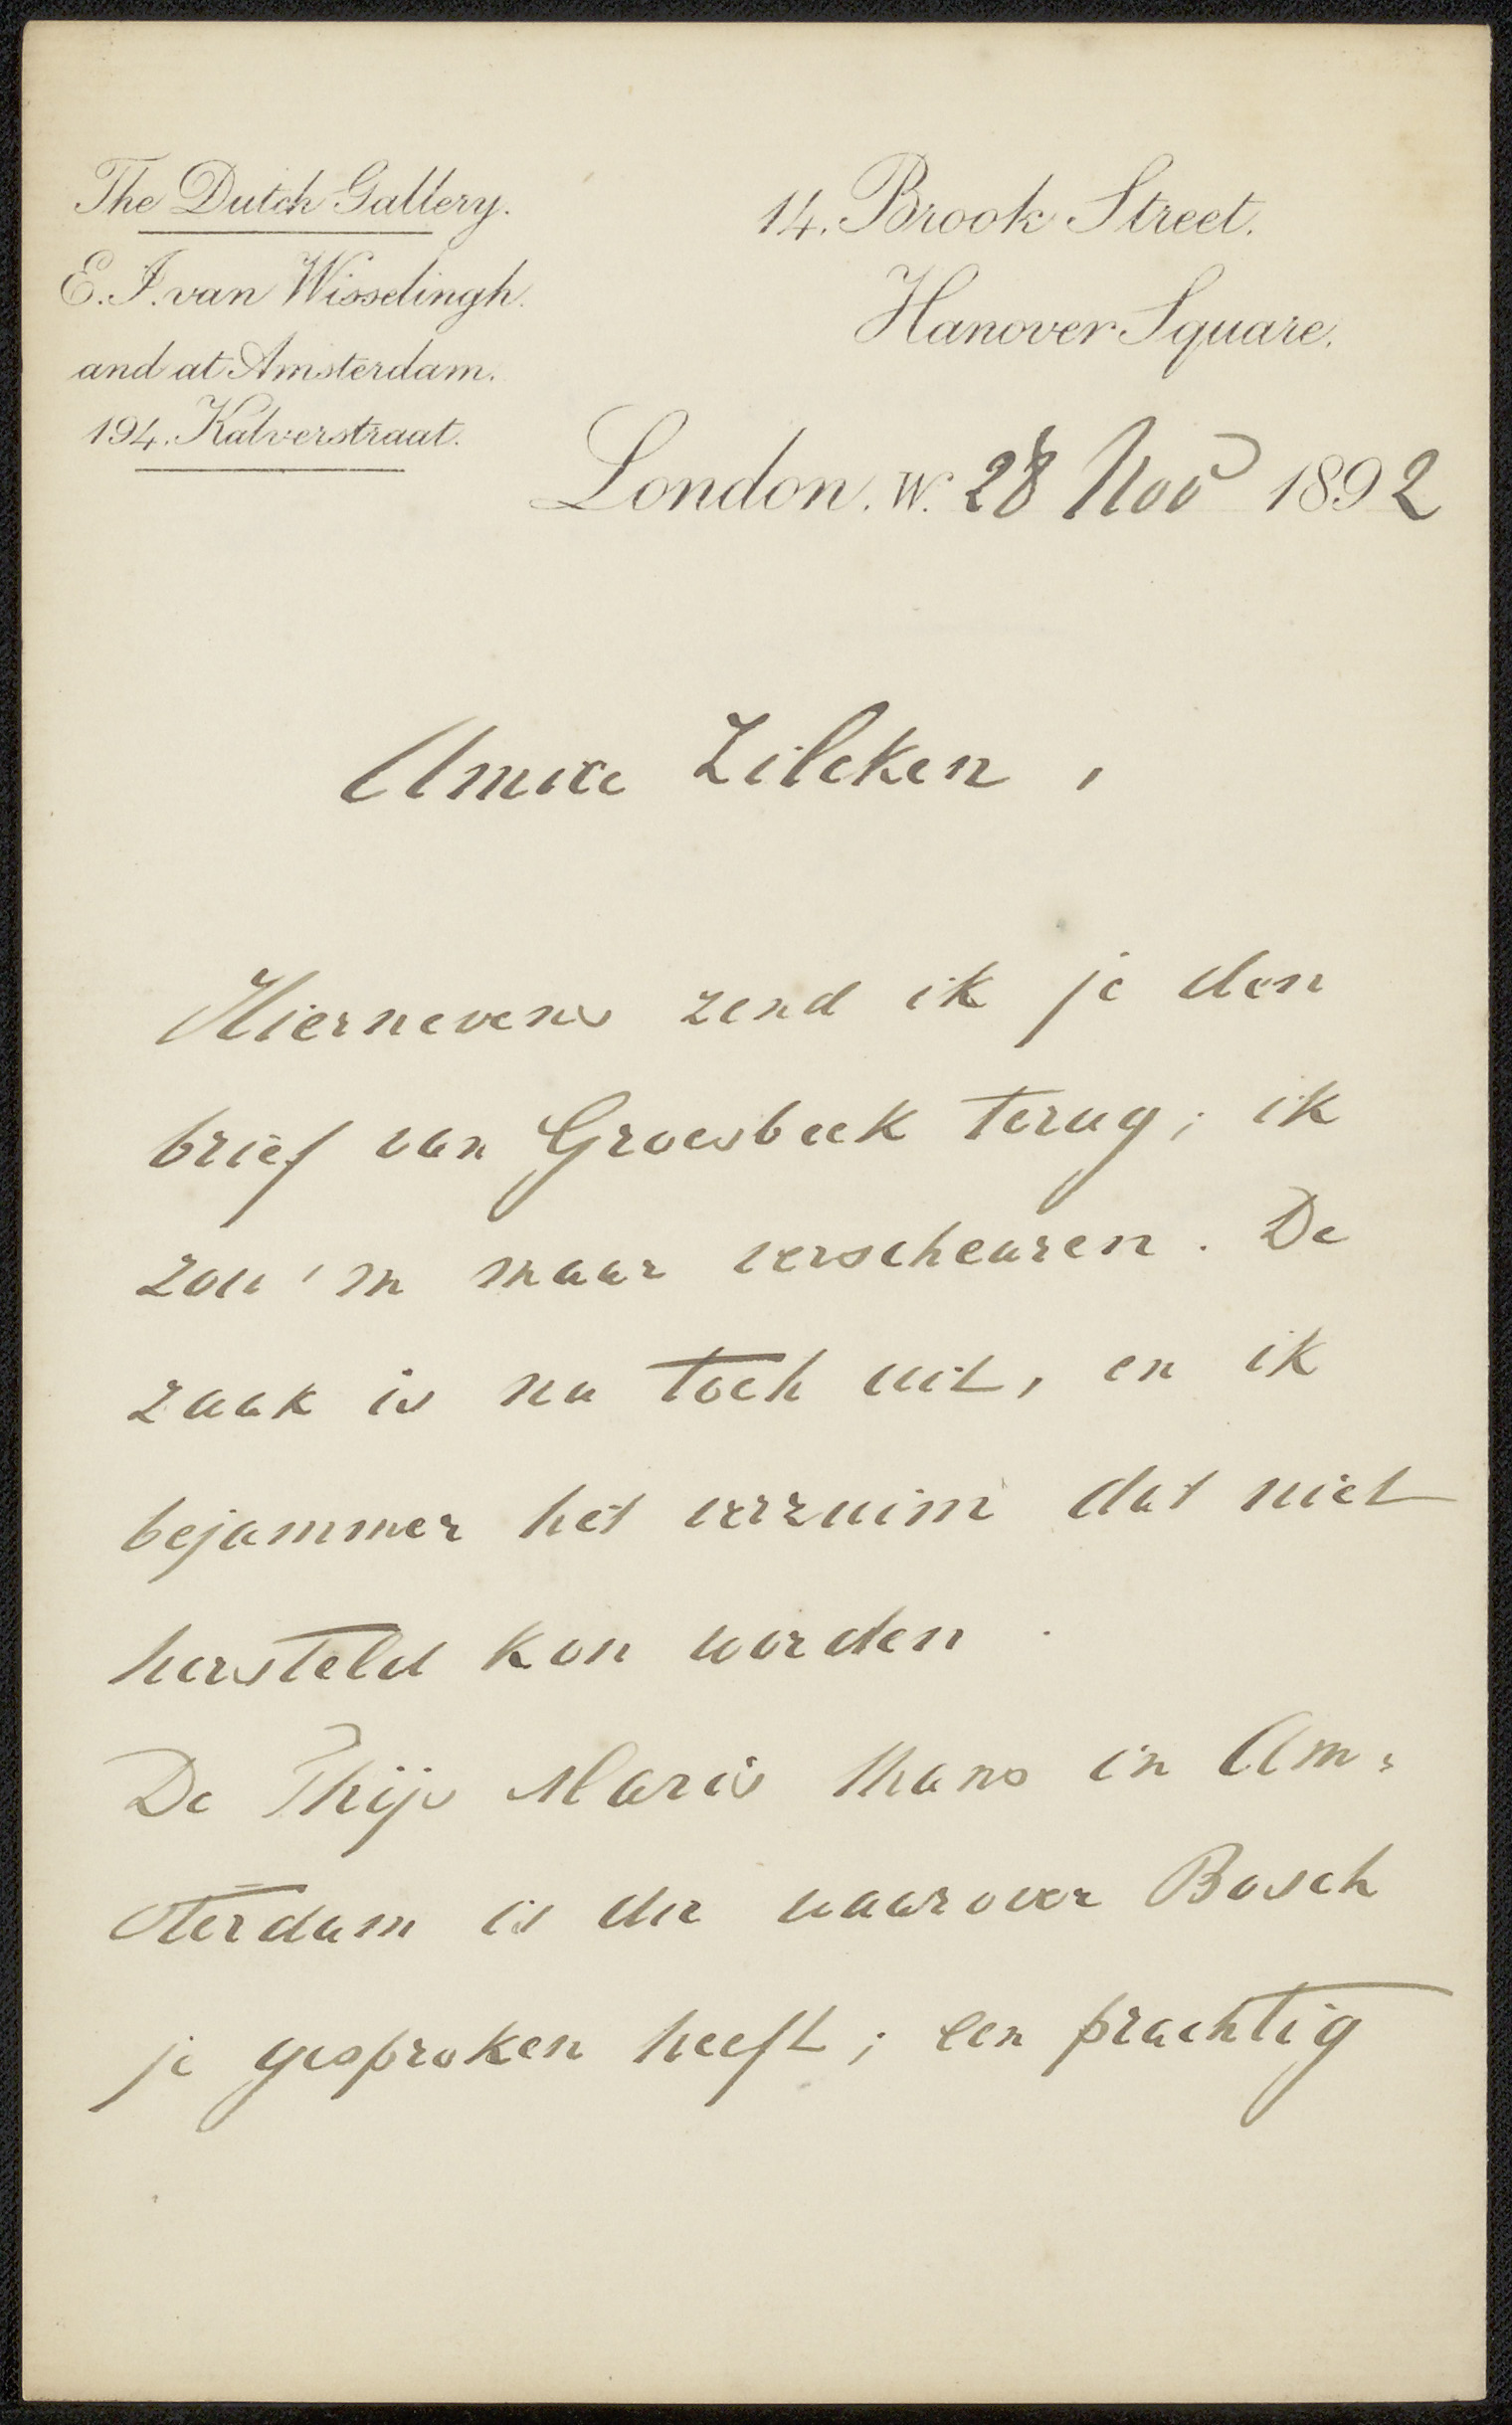 The Dutch Gallery.
E. J. van Wisselingh.
and at Amsterdam.
194. Kalverstraat.
14. Brook Street.
Hanover Square.
London. W. 28 Nov 1892
Amice Zilcken,
Hiernevens zend ik je den
brief van Groesbeek terug; ik
zou 'm maar verscheuren. De
zaak is nu toch uit, en ik
bejammer het verzuim dat niet
hersteld kon worden.
De Thijs Maris thans in Am-
sterdam is die waarover Bosch
je gesproken heeft; een prachtig